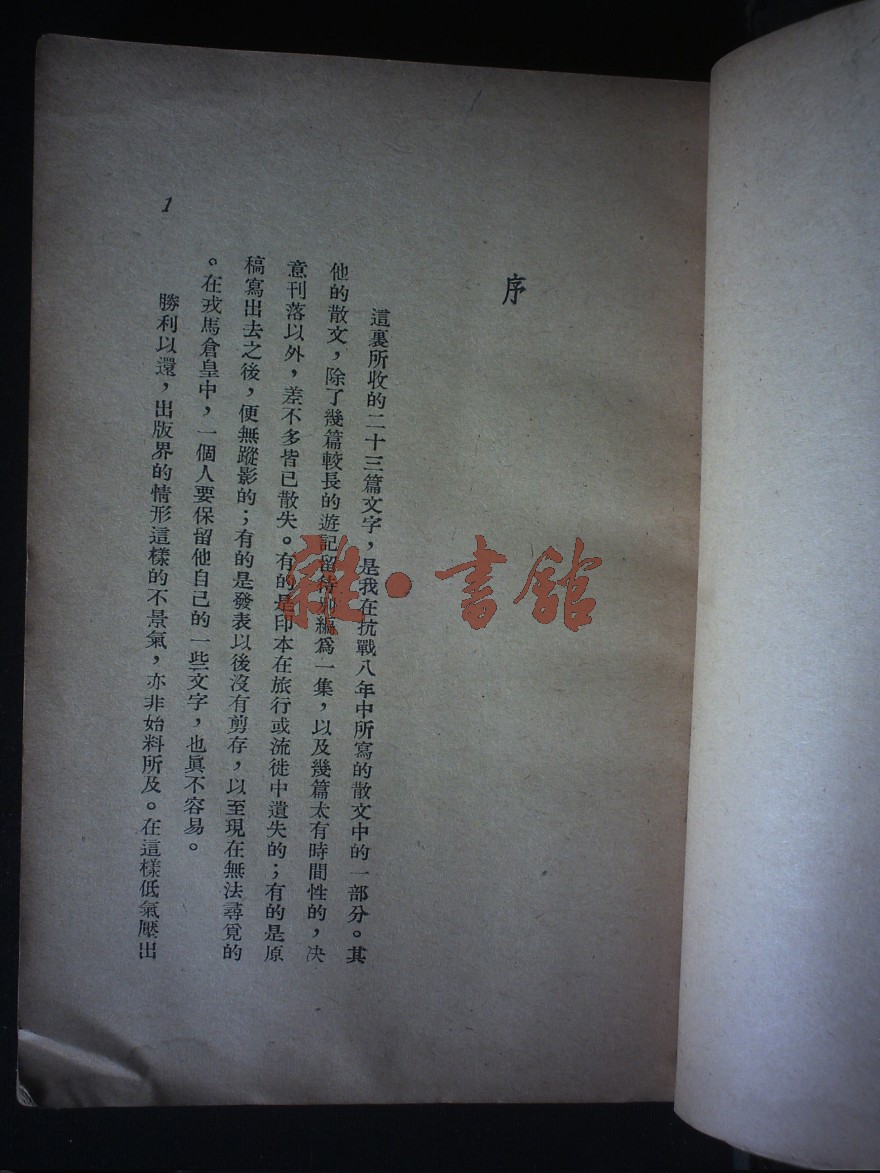 序
這裏所收的二十三篇文字，是我在抗戰八年中所寫的散文中的一部分。其
他的散文，除了幾篇較長的遊記留待別編爲一集，以及幾篇太有時間性的，决
意刊落以外，差不多皆已散失。有的是印本在旅行或流徙中遺失的；有的是原
稿寫出去之後，便無蹤影的；有的是發表以後沒有剪存，以至現在無法尋覓的
。在戎馬倉皇中，一個人要保留他自己的一些文字，也眞不容易。
勝利以還，出版界的情形這樣的不景氣，亦非始料所及。在這樣低氣壓出
1
雜·書館